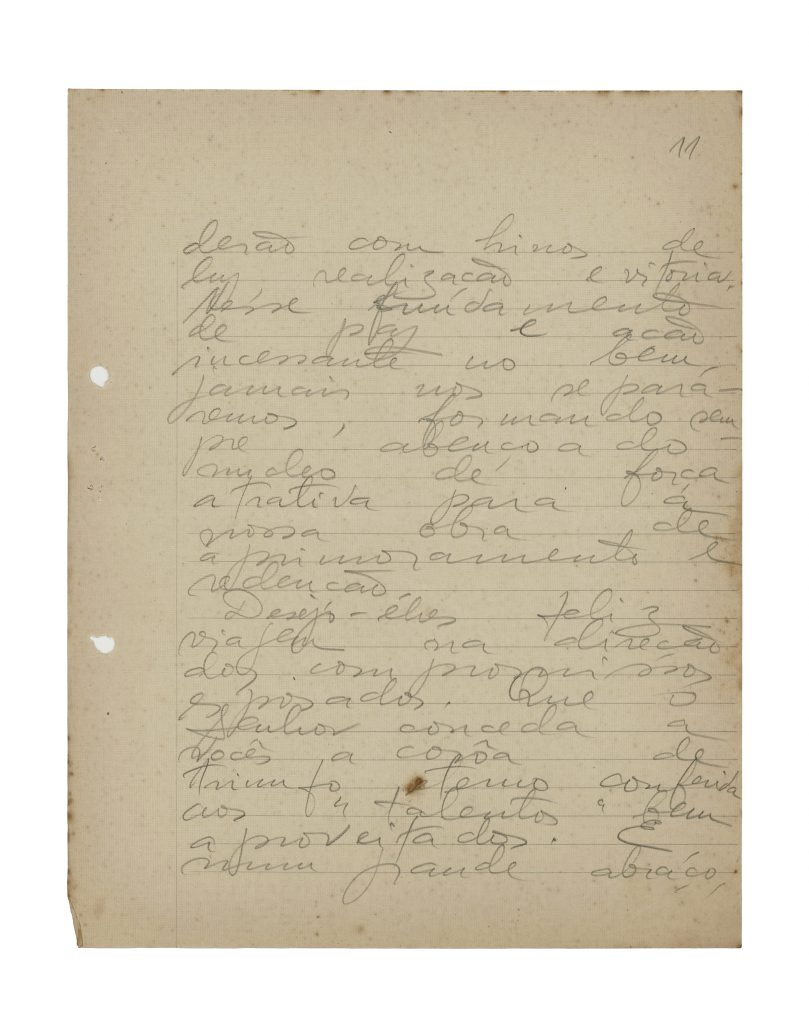 11
derão com hinos de
luz realização e vitoria.
Nesse fundamento
de paz e acão
incessante no bem,
jamais nos separá-
remos, formando sem-
pre abençoado
nucleo de força
atrativa para a
nossa obra de
aprimoramento e
redenção.
Desejo-lhes feliz
viagem na direcão
dos compromissos
esposados. Que o
Senhor conceda a
vocês a corôa de
triunfo eterno conferida
aos "talentos" bem
aproveitados. E
num grande abraço,